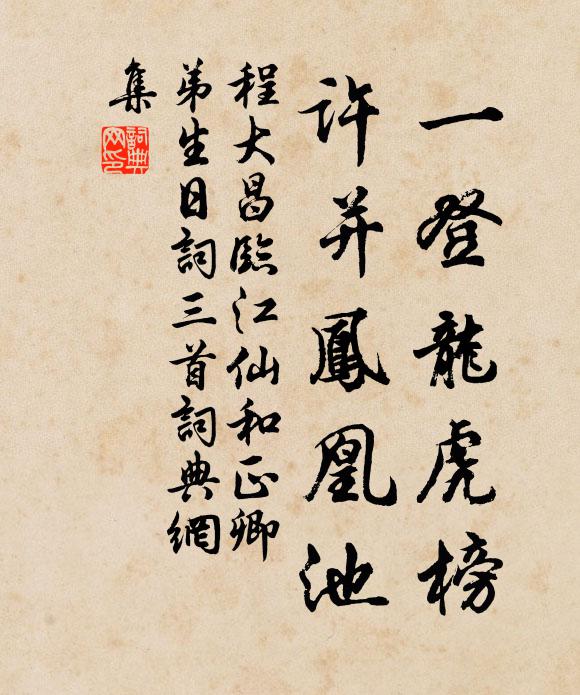 一登龍虎榜
許并鳳凰池
程大昌臨江仙和正卿
弟生日詞三首詞典網
集
詞典
网印